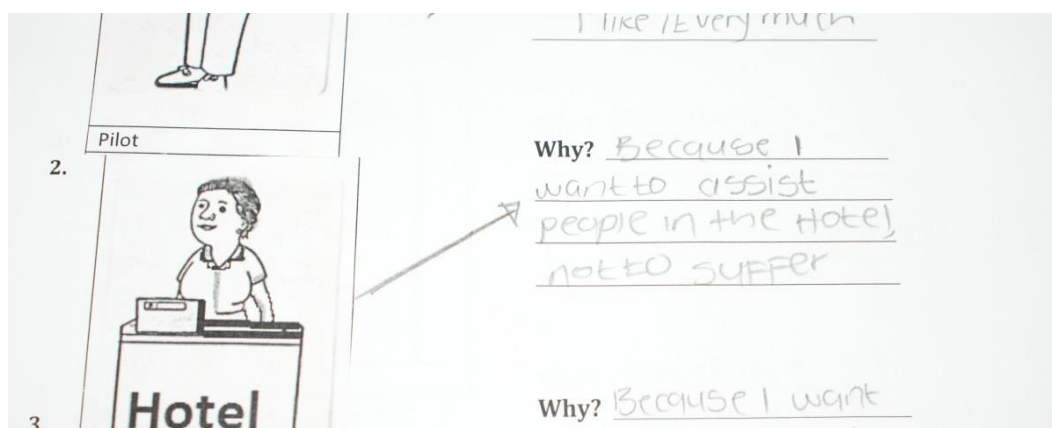 I like it very much
Pilot
2.
Why? Because I
want to assist
people in the Hotel,
not to suffer
Hotel
3.
Why? Because I want